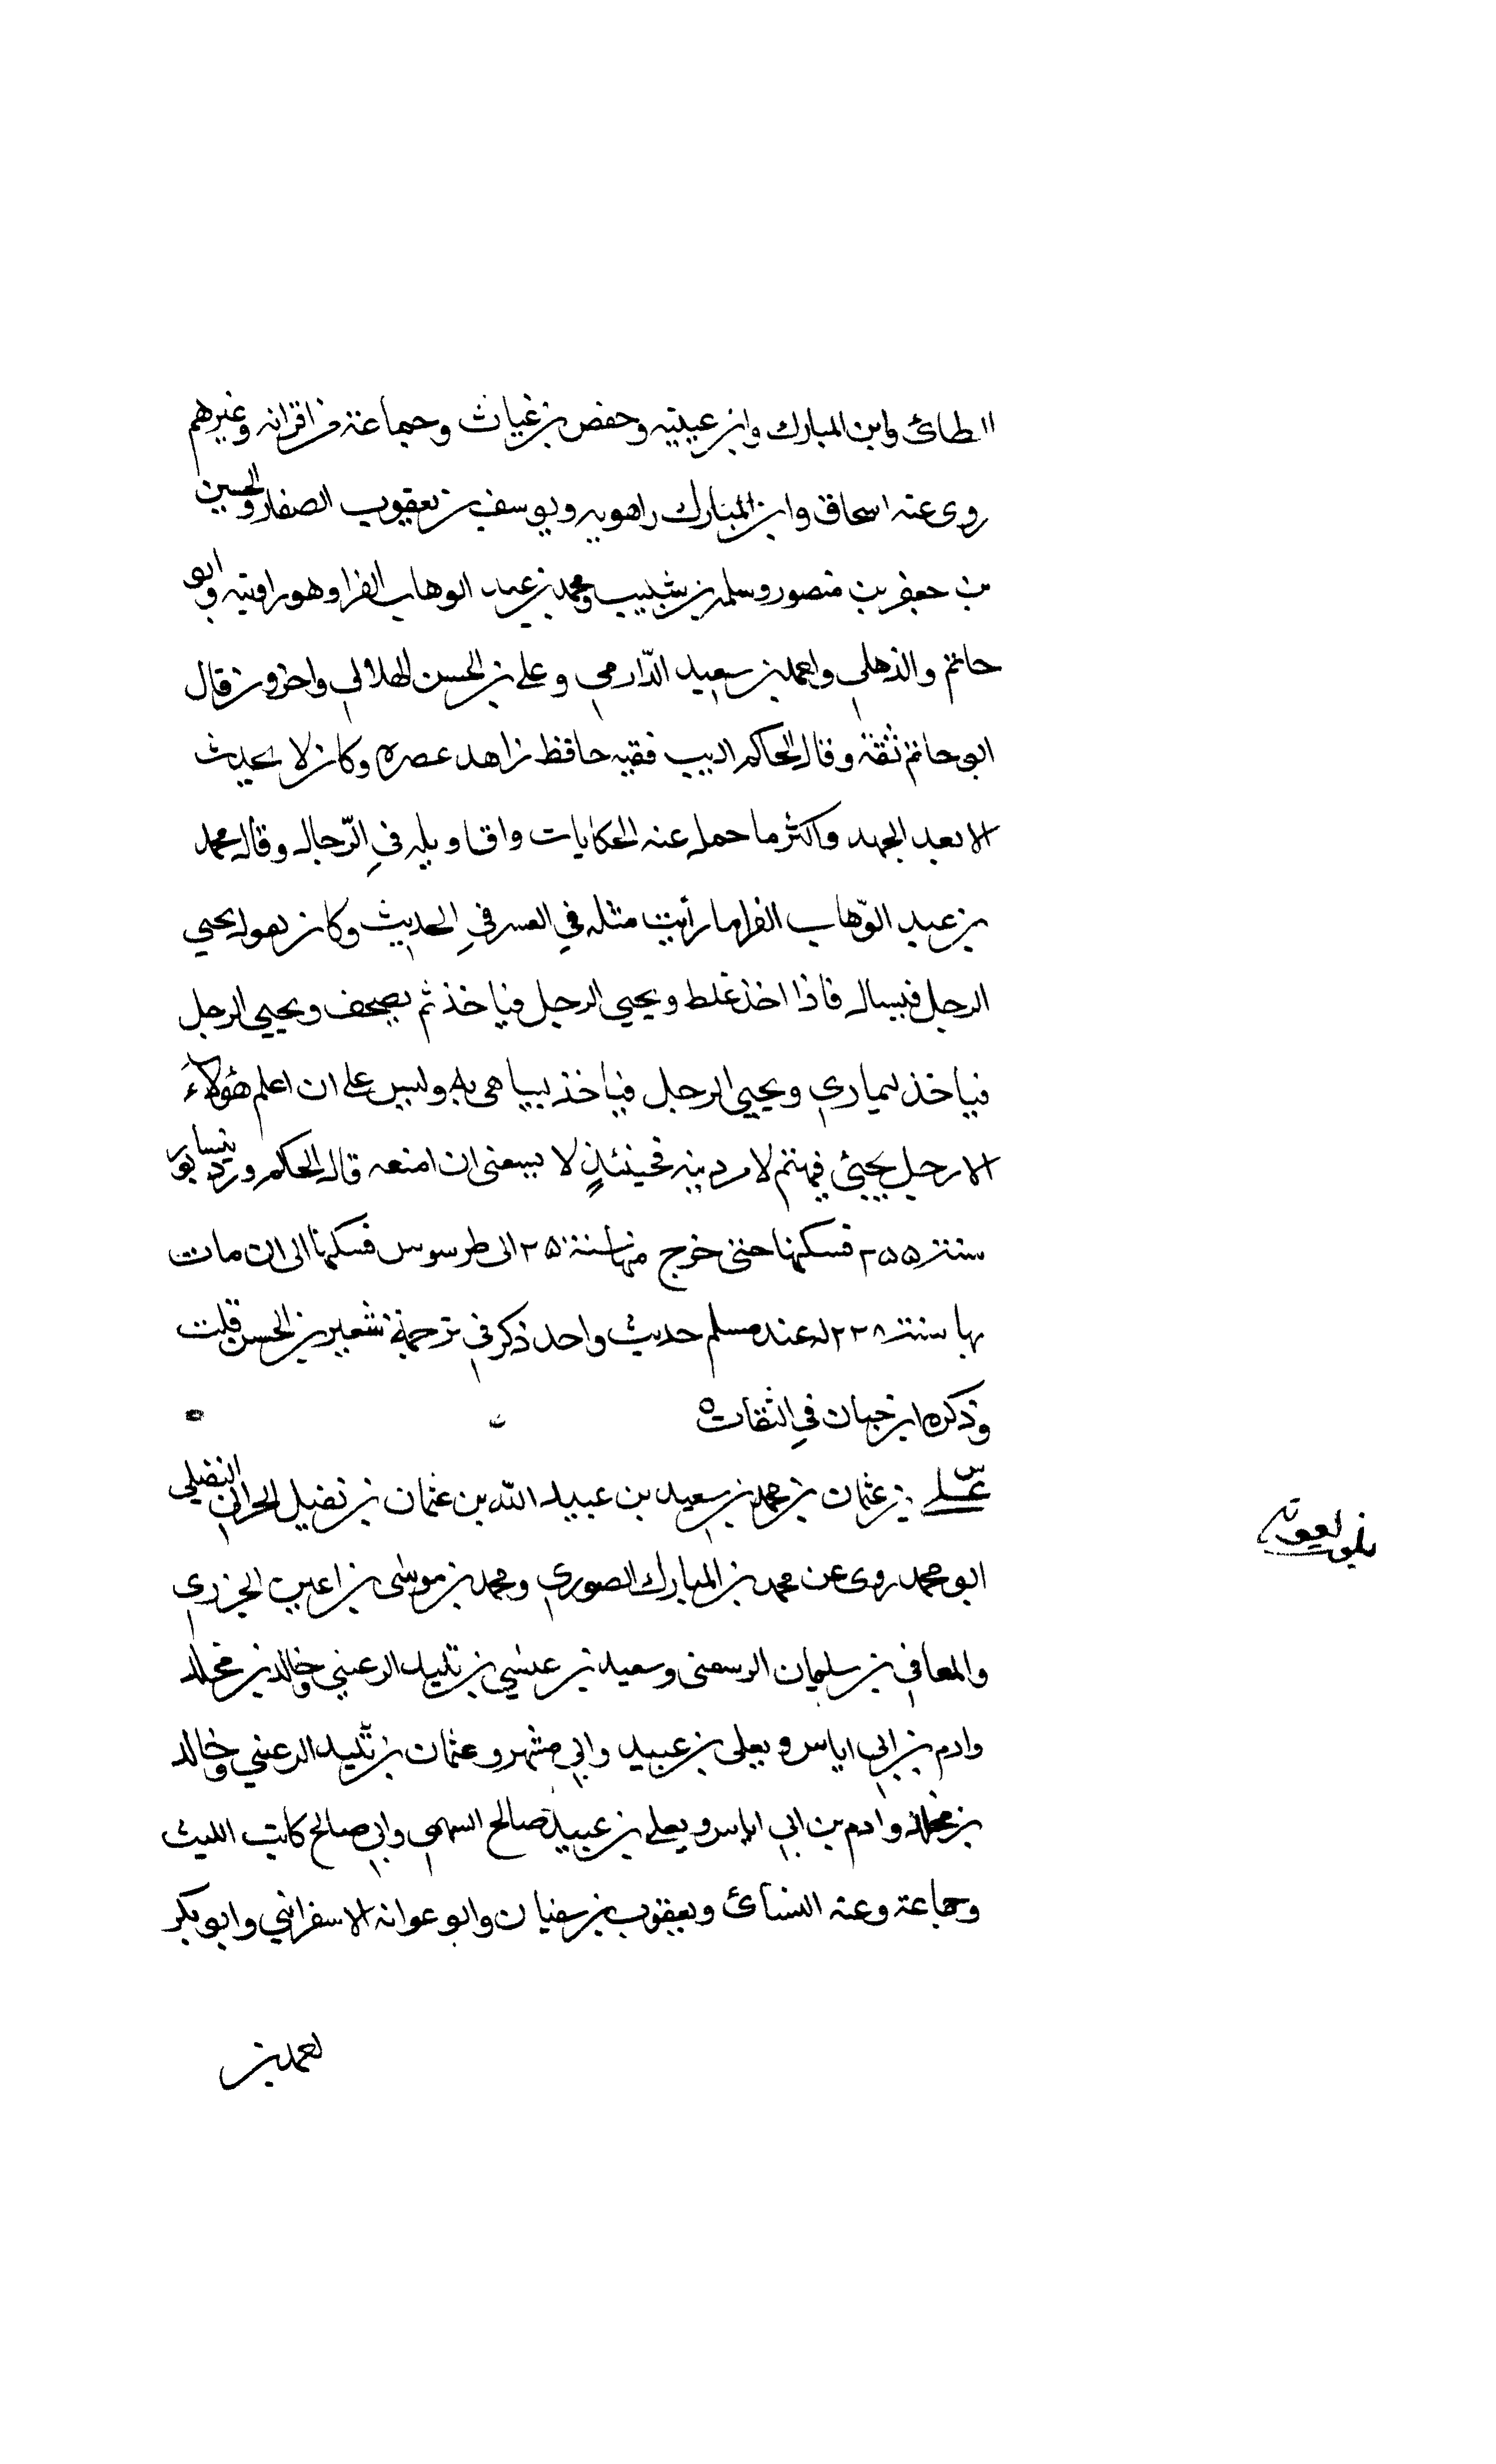 الطائ وابن المبارك وابن عيينه وحفص بن غياث وجماعة من اقرانه وغيرهم
روى عنه اسحاق وابن المبارك راهويه ويوسف بن يعقوب الصفار والحسين
بن جعفر بن منصور وسلمه بن شبيب ومحمد بن عبد الوهاب الفرا وهو راويته وابو
حاتم والذهلي واحمد بن سعيد الدّارمي وعلي بن الحسن الهلالي واخرون قال
ابو حاتم ثقة وقال الحاكم اديب فقيه حافظ زاهد عصره وكان لا يحدث
الا بعد الجهد واكثر ما حمل عنه الحكايات واقاويله في الرّجال وقال محمد
بن عبد الوّهاب الفرا ما رأيت مثله في العسر في الحديث وكان يقول يجيي
الرجل فيسال فاذا اخذ غلط ويجيي الرجل فياخذ ثم يصحف ويجيي الرجل
فياخذ ليماري ويجيي الرجل فياخذ ليباهى به وليس على ان اعلم هؤلاء
الا رجل يجيئ فيهتم لامر دينه فحينئذٍ لا يسعنى ان امنعه قال الحاكم ورد نيسابور
سنة ٢٥٥ فسكنها حتى خرج منها سنة ٢٥ الى طرسوس فسكنها الى ان مات
بها سنة ٢٢٨ له عند مسلم حديث واحد ذكر في ترجمة شعير بن الحسن قلت
وذكره ابن حبان في الثقات ه
علي بن عثمان بن محمد بن سعيد بن عبيد الله بن عثمان بن نفيل الحراني النفيلي
ابو محمد روى عن محمد بن المبارك الصوري ومحمد بن موسى بن اعين الجزري
والمعافي بن سليمان الرسعنى وسعيد بن عيسي بن تليد الرعيني وخالد بن مخلد
وادم بن ابي اياس ويعلى بن عبيد وابي مشهر وعثمان بن تليد الرعيني وخالد
بن مخلد وادم بن ابي اياس ويعلي بن عبيد صالح السهمي وابي صالح كاتب الليث
وجماعة وعنه النسائ ويعقوب بن سفيان وابو عوانه الاسفرايني وابو بكر